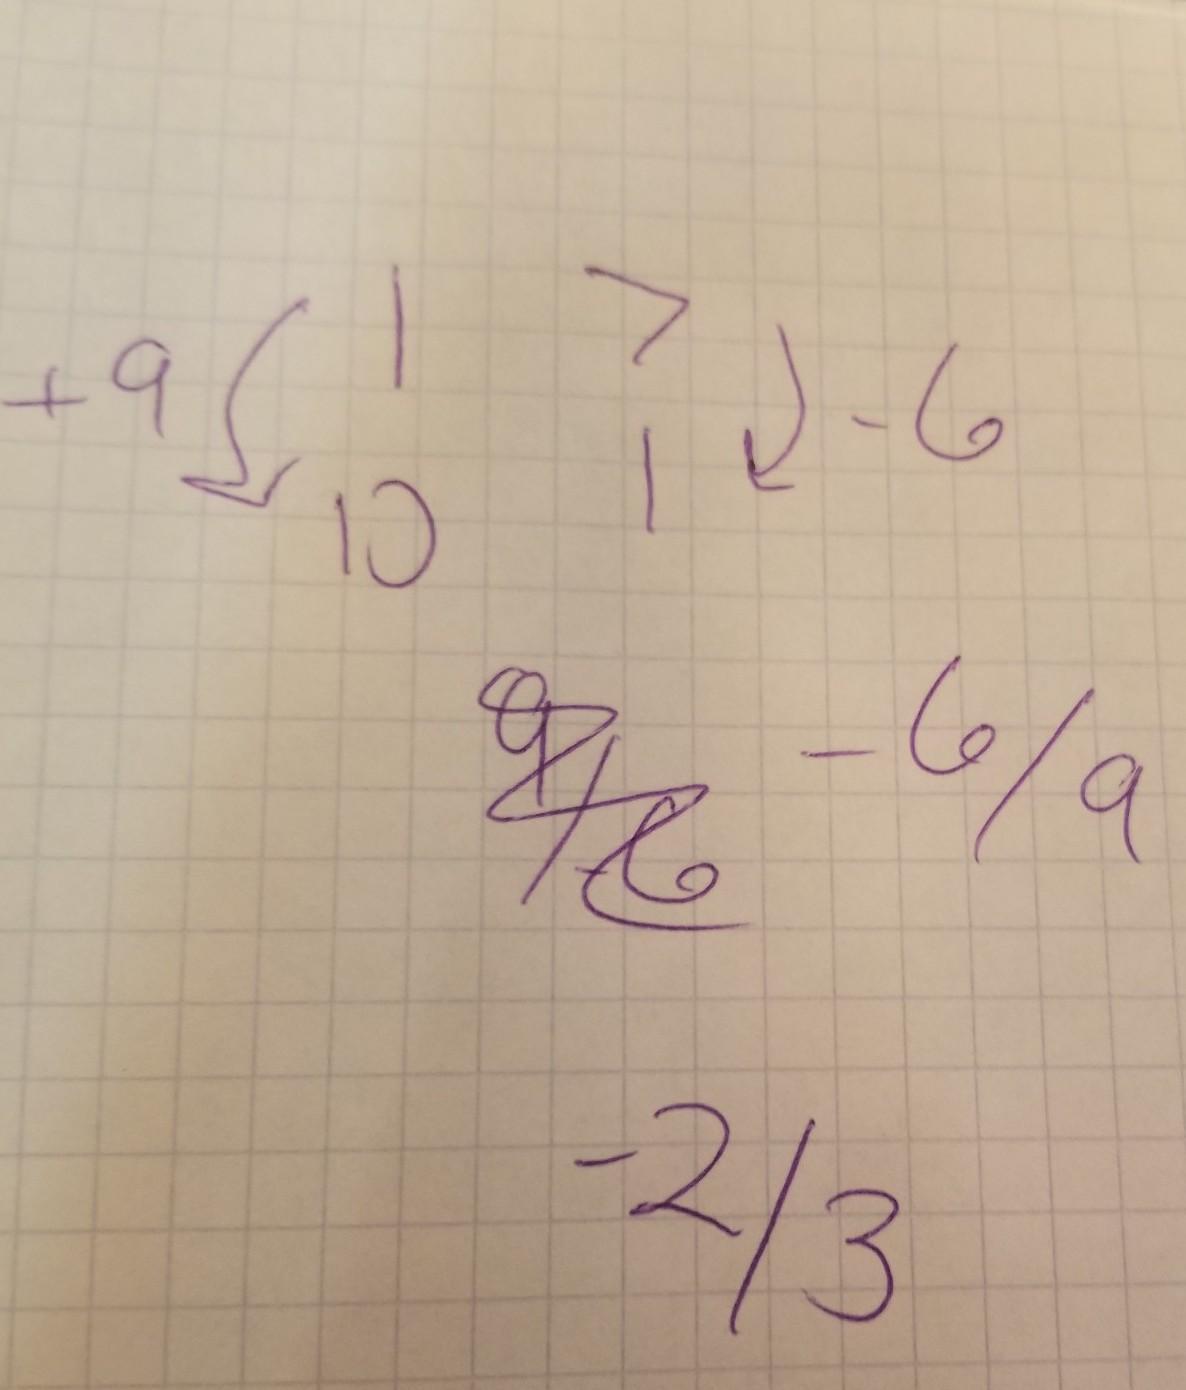 +9 1 7 -6
10 1
9/-6 -6/9
-2/3